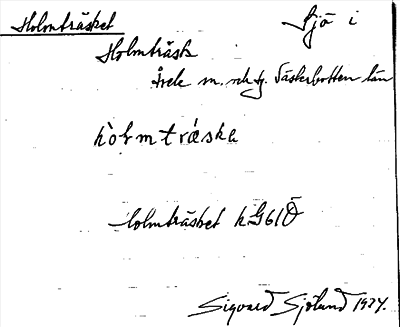 Holmträsket Sjö i
Holmträsk
m. Västerbotten län
holmträske
Holmträsket kG61Ö
Sigvard Sjölund 1927.